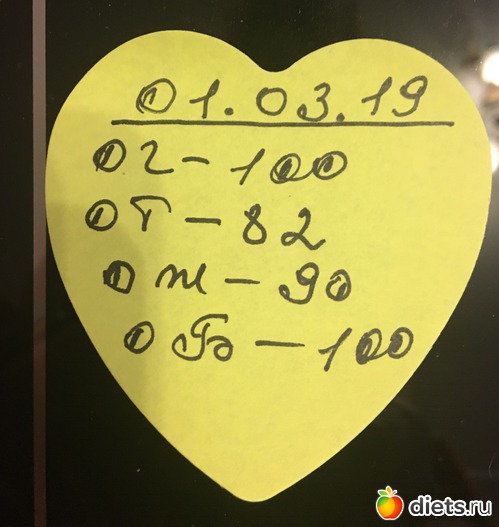 01.03.19
ОГ-100
ОТ-82
ОЖ-90
ОБ-100
diets.ru